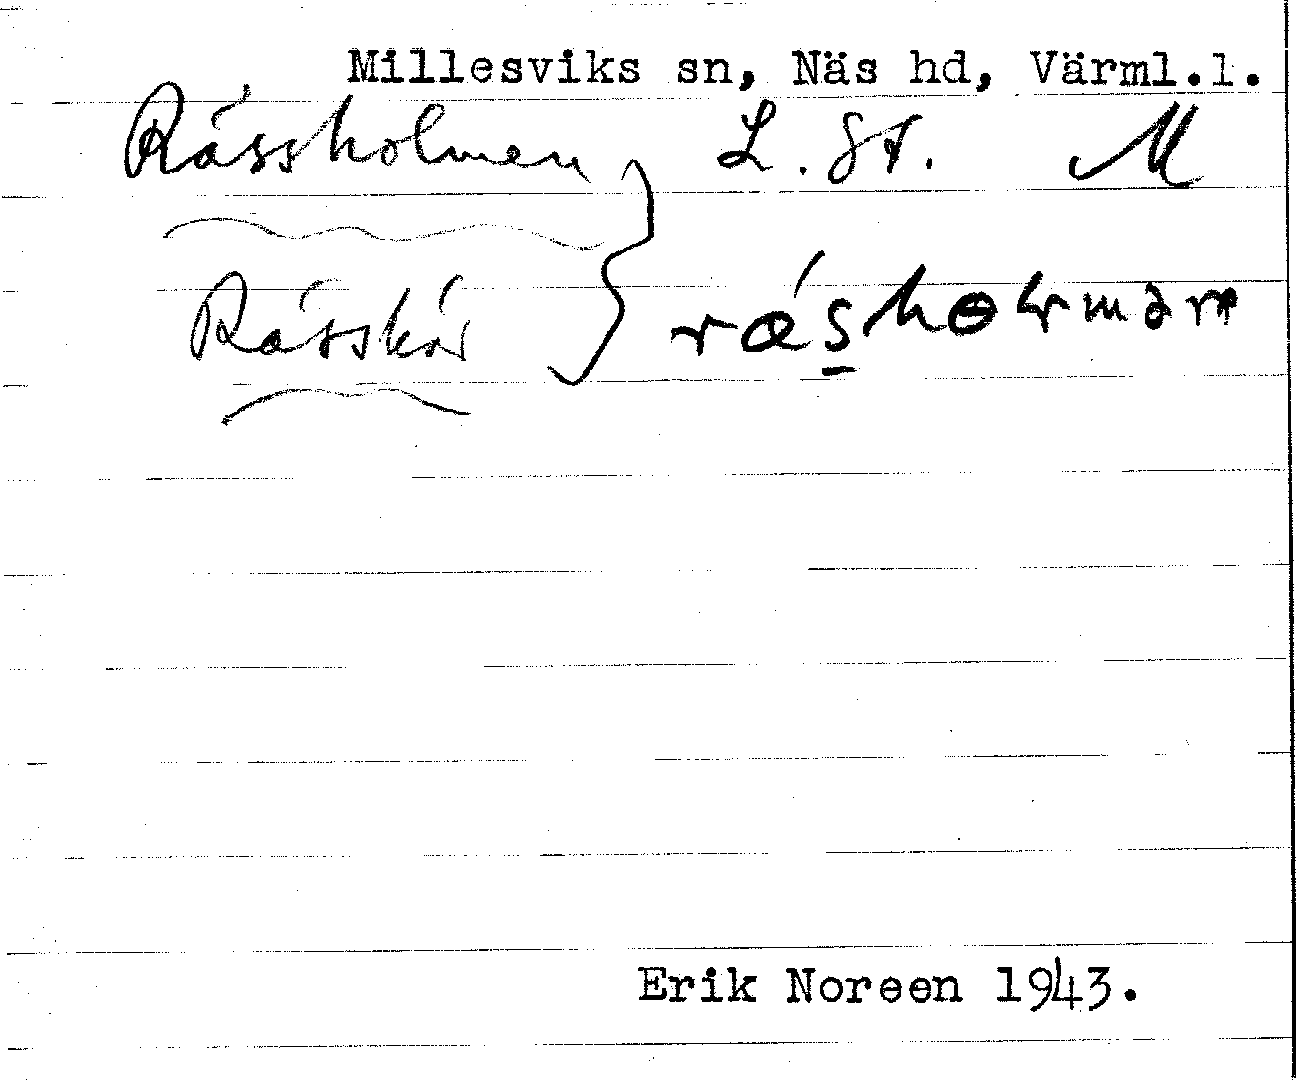 Millesviks sn, Näs hd, Värml.l.
Råssholmen } L. St. M
Råsskär
Erik Noreen 1943.